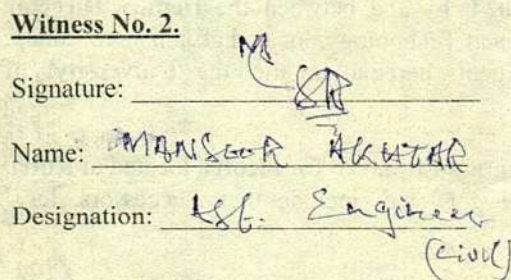 Witness No. 2.
Signature:
Name: MANSOOR AKHTAR
Designation: Asst. Engineer
(Civil)